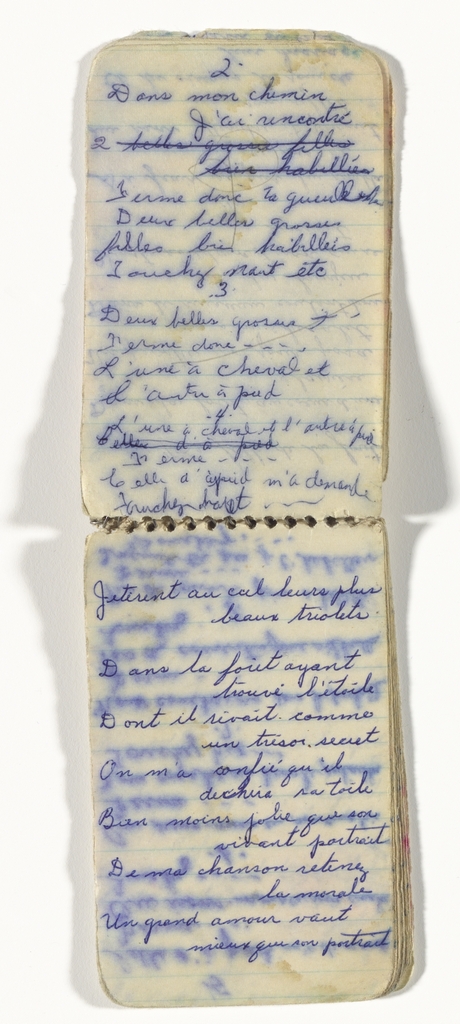 2
Dans mon chemin
J'ai rencontré
2 belles grosses filles
bien habillées
Ferme donc ta gueule
Deux belles grosses
filles bin habillées
Touchez mart etc
3
Deux belles grosses
Ferme donc - - -
L'une à cheval et
L'autre à pied
4
L'une a cheval et l'autre à pied
Celle d'à pied
Ferme - - -
Celle d'àpied m'a demandé
Touchez
Jetèrent au ciel leurs plus
beaux triolets.
Dans la foret ayant
trouvé l'étoile
Dont il rêvait comme
un trésor secret
On m'a confié qu'il
déchira sa toile
Bien moins jolie que son
vivant portrait
De ma chanson retenez
la morale
Un grand amour vaut
mieux que son portrait